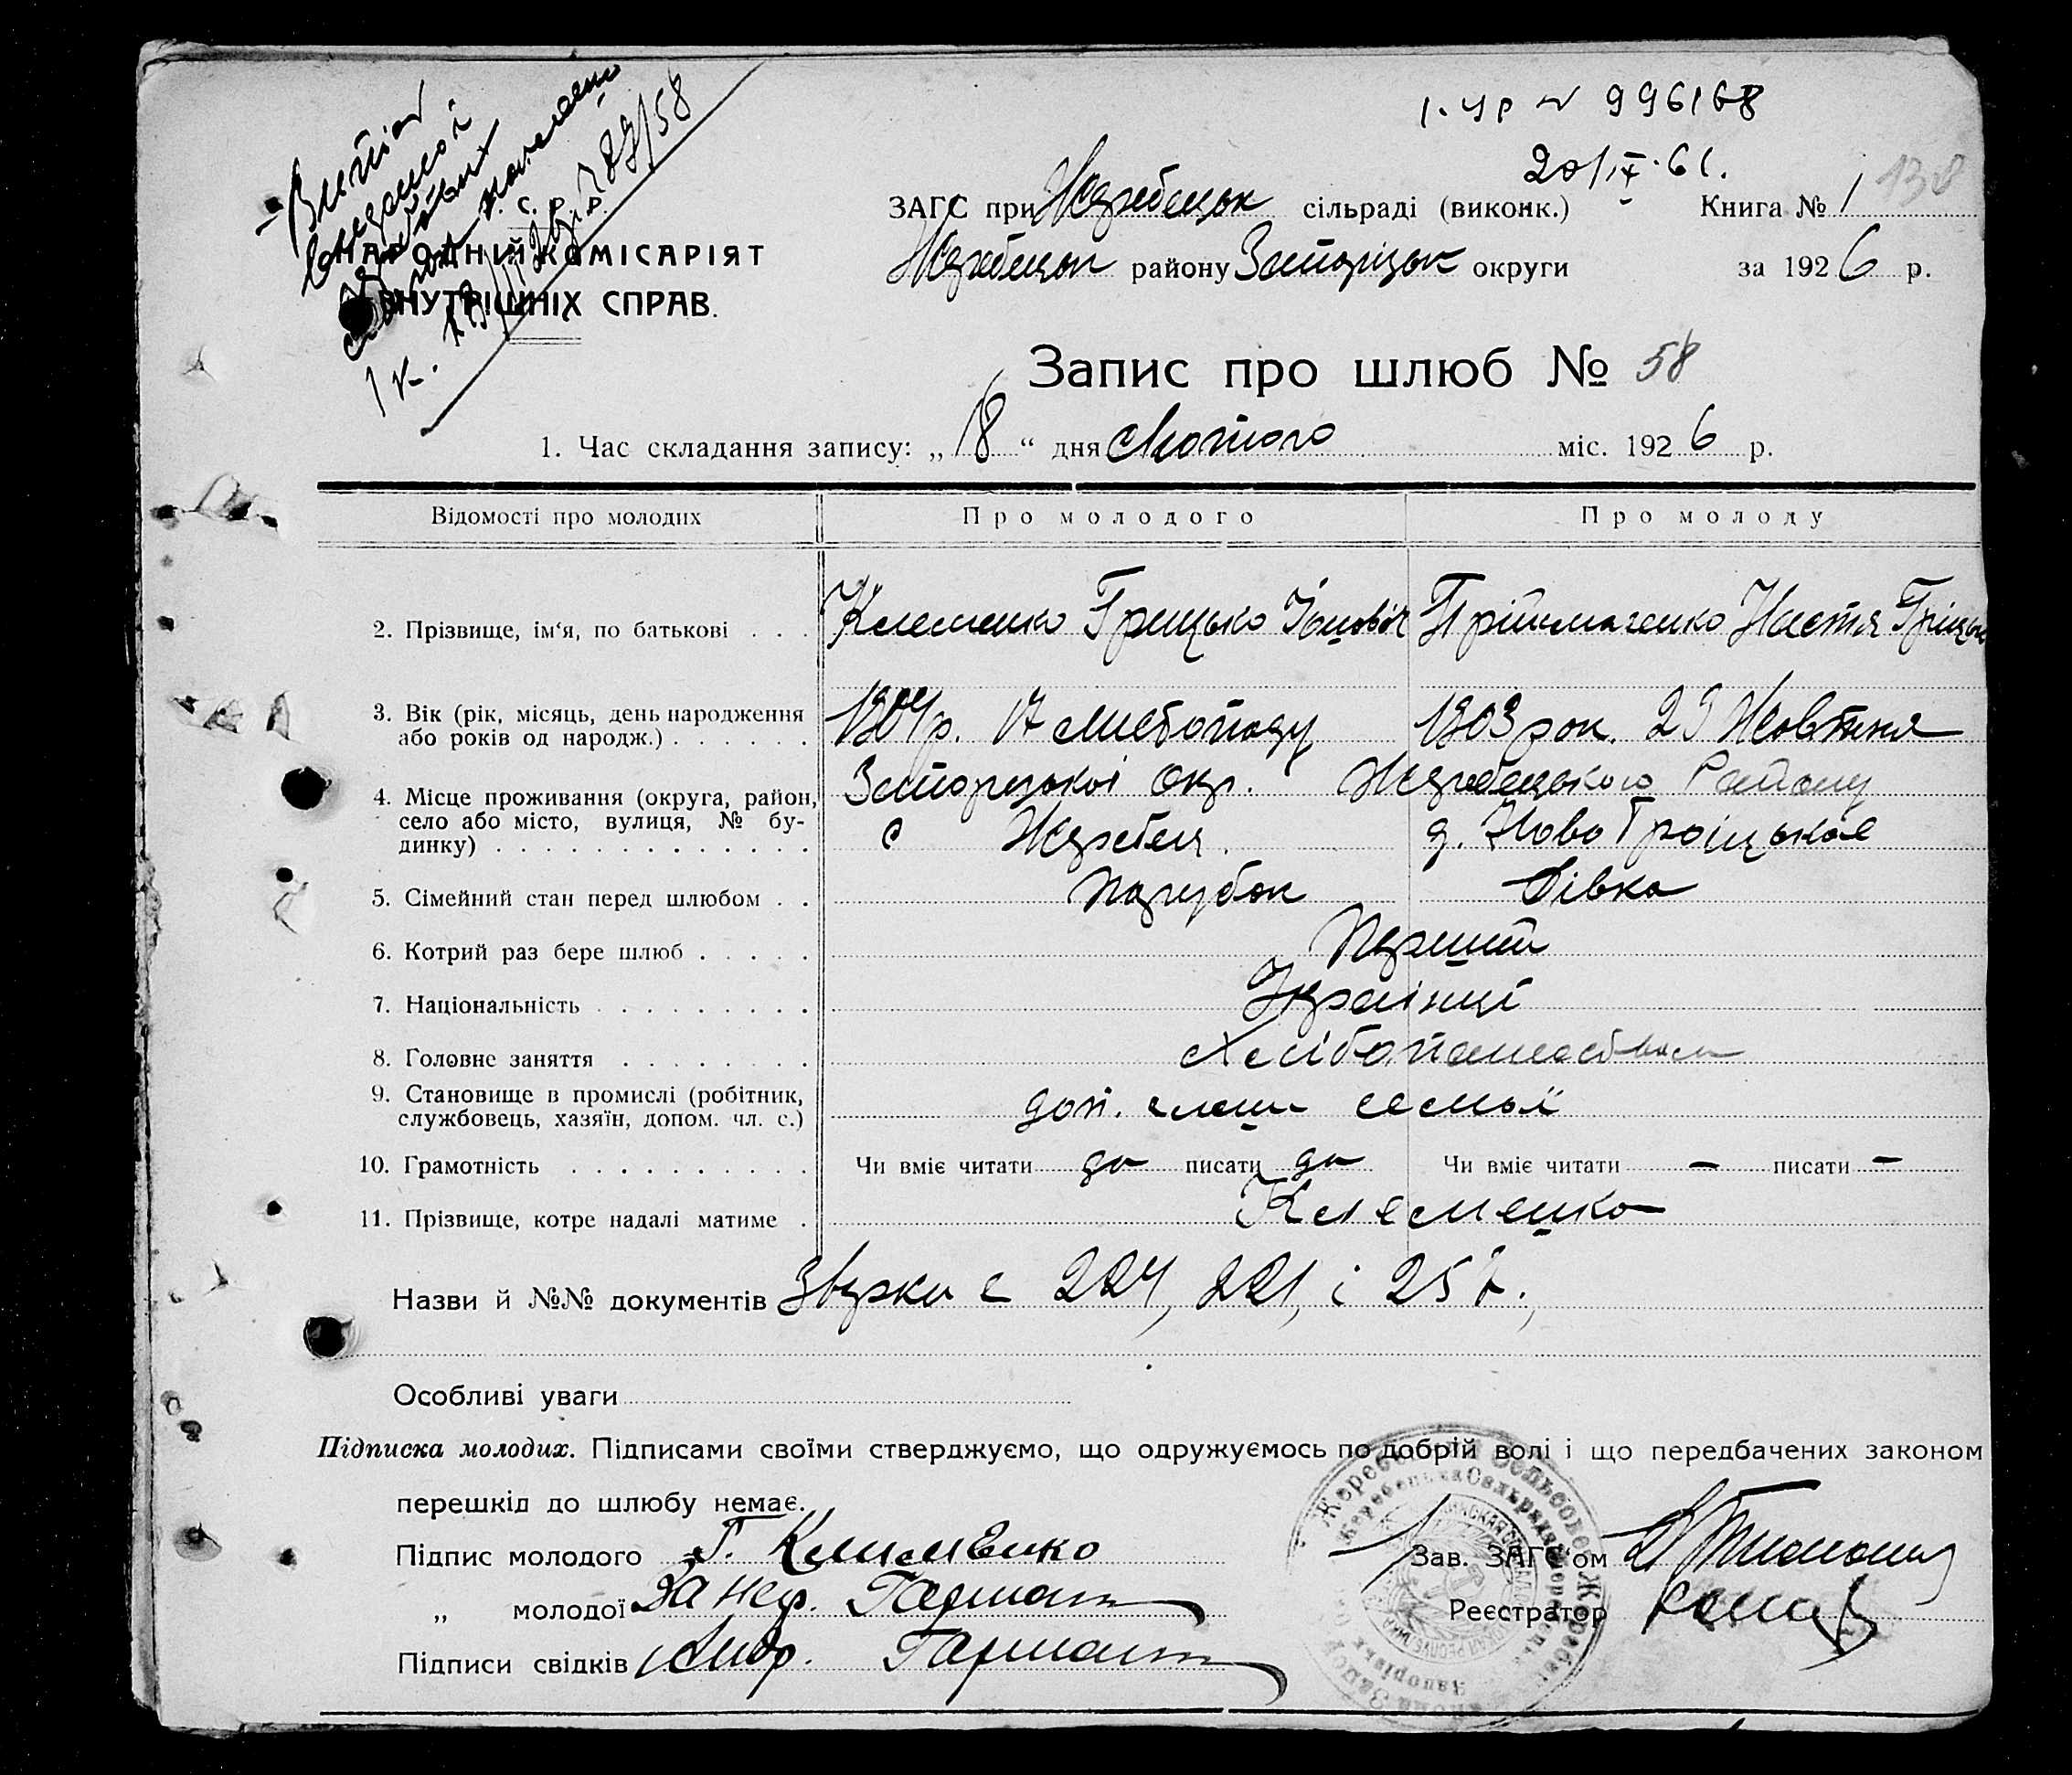 1. ур № 996168
20/IX·61.
ЗАГС при Жеребецьк сільраді (виконк.) Книга № 1 138
Жеребецьк району Запорізьк округи за 1926 р.
НАРОДНИЙ КОМІСАРІЯТ
ВНУТРІШНІХ СПРАВ.
Запис про шлюб № 58
1. Час складання запису: „18“ дня Лютого міс. 1926 р.
Відомості про молодих Про молодого Про молоду
2. Прізвище, ім‘я, по батькові . . . Клеменко Грицько Пріймаченко Настя Гріцьк
3. Вік (рік, місяць, день народження 1904р. 17 листопаду 1903 рок. 29 Жовтня
або років од народж.) . . . . . .
4. Місце проживання (округа, район, Запорізькоі окр. Жеребецького Району
село або місто, вулиця, № бу- с Жеребец. д. Ново Троіцькае
динку) . . . . . . . . . . . . .
5. Сімейний стан перед шлюбом . . Парубок Дівка
6. Котрий раз бере шлюб . . . . . Перший
7. Національність . . . . . . . . . Украінці
8. Головне заняття . . . . . . . . Хлібопашеством
9. Становище в промислі (робітник,
службовець, хазяїн, допом. чл. с.) доп. члени семьї
10. Грамотність . . . . . . . . . . Чи вміє читати да писати да Чи вміє читати — писати —
11. Прізвище, котре надалі матиме . Клеменко
Назви й №№ документів Звірки с 224, 221, і 257.,
Особливі уваги
Підписка молодих. Підписами своїми стверджуємо, що одружуємось по добрій волі і що передбачених законом
перешкід до шлюбу немає.
Підпис молодого Г. Клименко Зав. ЗАГС‘ом
„ молодої За нер. Гармаш Реєстратор
Підписи свідків Андр. Гармаш